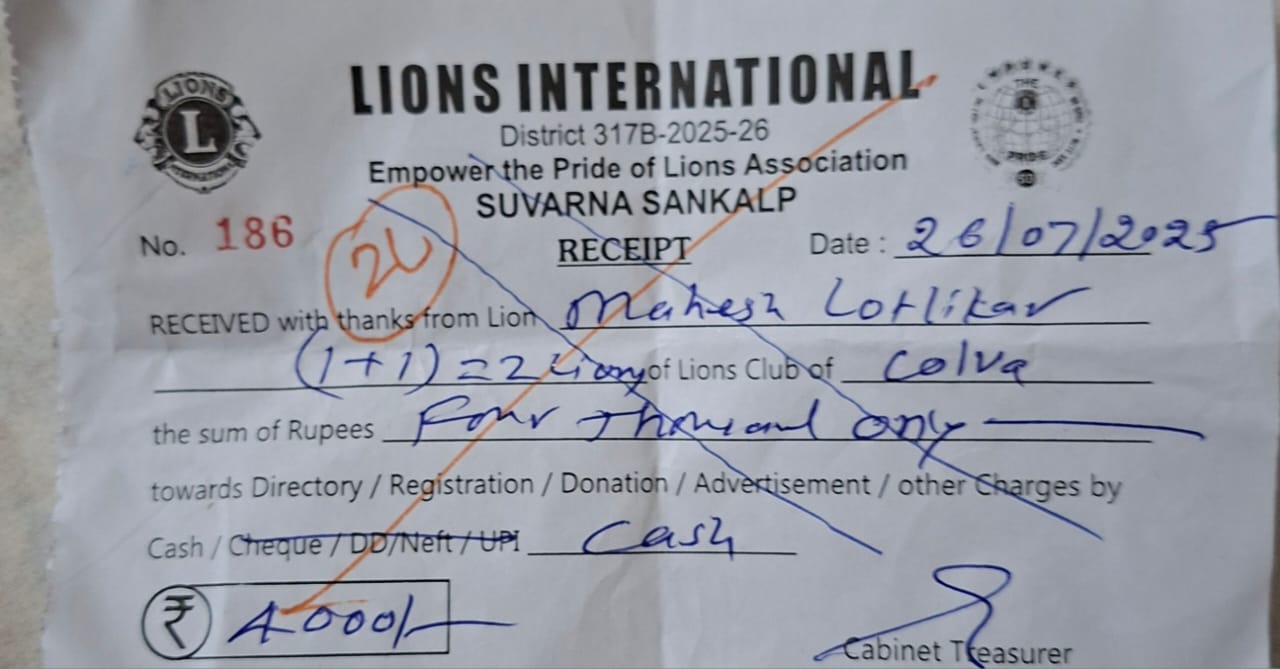 LIONS INTERNATIONAL
District 317B-2025-26
Empower the Pride of Lions Association
SUVARNA SANKALP
No. 186
RECEIPT
Date : 26/07/2025
RECEIVED with thanks from Lion Mahesh Lotlikar
(1+1) = 2 Lions of Lions Club of Colva
the sum of Rupees Four Thousand only
towards Directory / Registration / Donation / Advertisement / other Charges by
Cash / Cheque / DD/Neft / UPI Cash
₹ 4000/-
Cabinet Treasurer
LIONS
L
INTERNATIONAL
THE
PRIDE